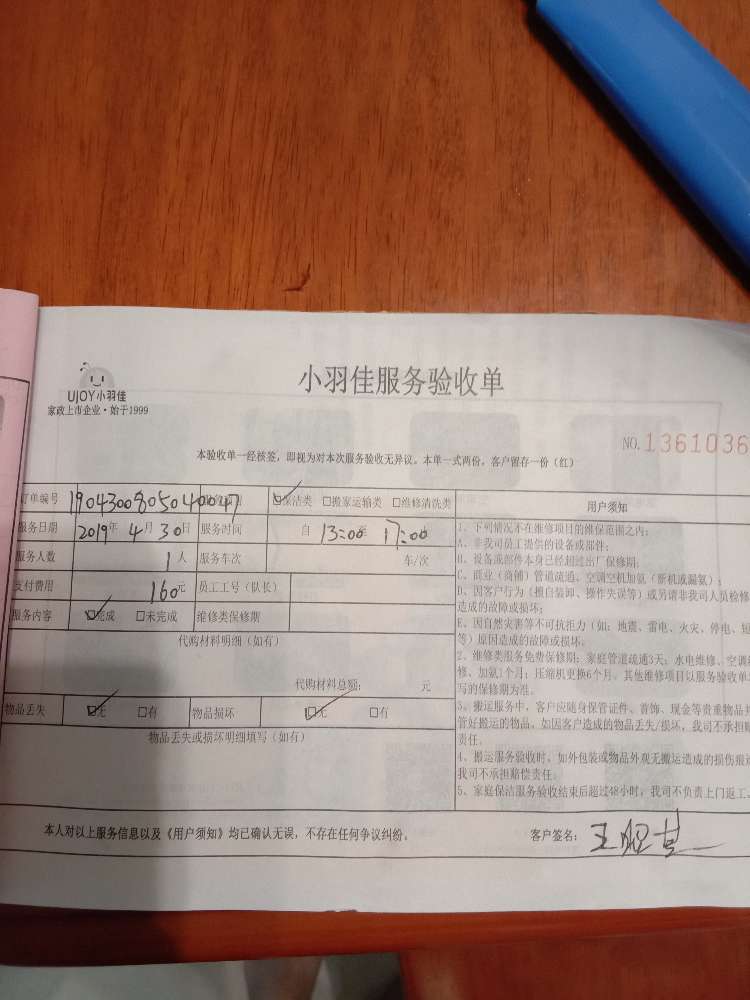 UJOY小羽佳
家政上市企业·始于1999
小羽佳服务验收单
NO.1361036
本验收单一经核签，即视为对本次服务验收无异议。本单一式两份，客户留存一份（红）
订单编号 1904300805040047 ☑保洁类 □搬家运输类 □维修清洗类
服务日期 2019年4月30日 服务时间 自 13:00 至 17:00
服务人数 1人 服务车次 车/次
支付费用 160元 员工工号（队长）
服务内容 ☑完成 □未完成 维修类保修期
代购材料明细（如有）
代购材料总额： 元
物品丢失 ☑无 □有 物品损坏 ☑无 □有
物品丢失或损坏明细填写（如有）
用户须知
1、下列情况不在维修项目的维保范围之内：
A、非我司员工提供的设备或部件；
B、设备或部件本身已经超过出厂保修期；
C、商业（商铺）管道疏通、空调空机加氨（断机或漏氨）；
D、因客户行为（擅自装卸、操作失误等）或另请非我司人员检修
造成的故障或损坏；
E、因自然灾害等不可抗拒力（如：地震、雷电、火灾、停电、短
等）原因造成的故障或损坏。
2、维修类服务免费保修期：家庭管道疏通3天；水电维修、空调
修、加氨1个月；压缩机更换6个月。其他维修项目以服务验收单
写的保修期为准。
3、搬运服务中，客户应随身保管证件、首饰、现金等贵重物品并
管好搬运的物品。如因客户造成的物品丢失/损坏，我司不承担赔
责任。
4、搬运服务验收时，如外包装或物品外观无搬运造成的损伤痕迹
我司不承担赔偿责任。
5、家庭保洁服务验收结束后超过48小时，我司不负责上门返工。
本人对以上服务信息以及《用户须知》均已确认无误，不存在任何争议纠纷。 客户签名：